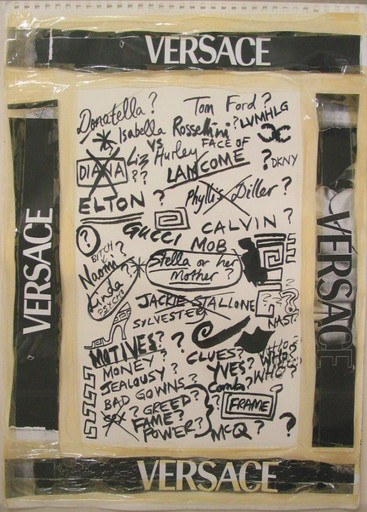 VERSACE
VERSACE
VERSACE
Donatella?
Tom Ford?
Isabella Rossellini?
LVMHLG
VS
FACE OF
Liz Hurley
LANCOME
DIANA
??
? DKNY
Phyllis Diller?
ELTON?
?
GUCCI
CALVIN?
MOB
BITCH
Naomi?
Stella or her
Mother?
Linda
PSYCHO
JACKIE STALLONE?
SYLVESTER
NAST?
MOTIVES??
CLUES?
WHO?
MONEY?
YVES?
WHO?
WHO?
JEALOUSY?
BAD GOWNS?
SEX?
GREED?
FAME?
POWER?
?
FRAME
McQ??
?
VERSACE